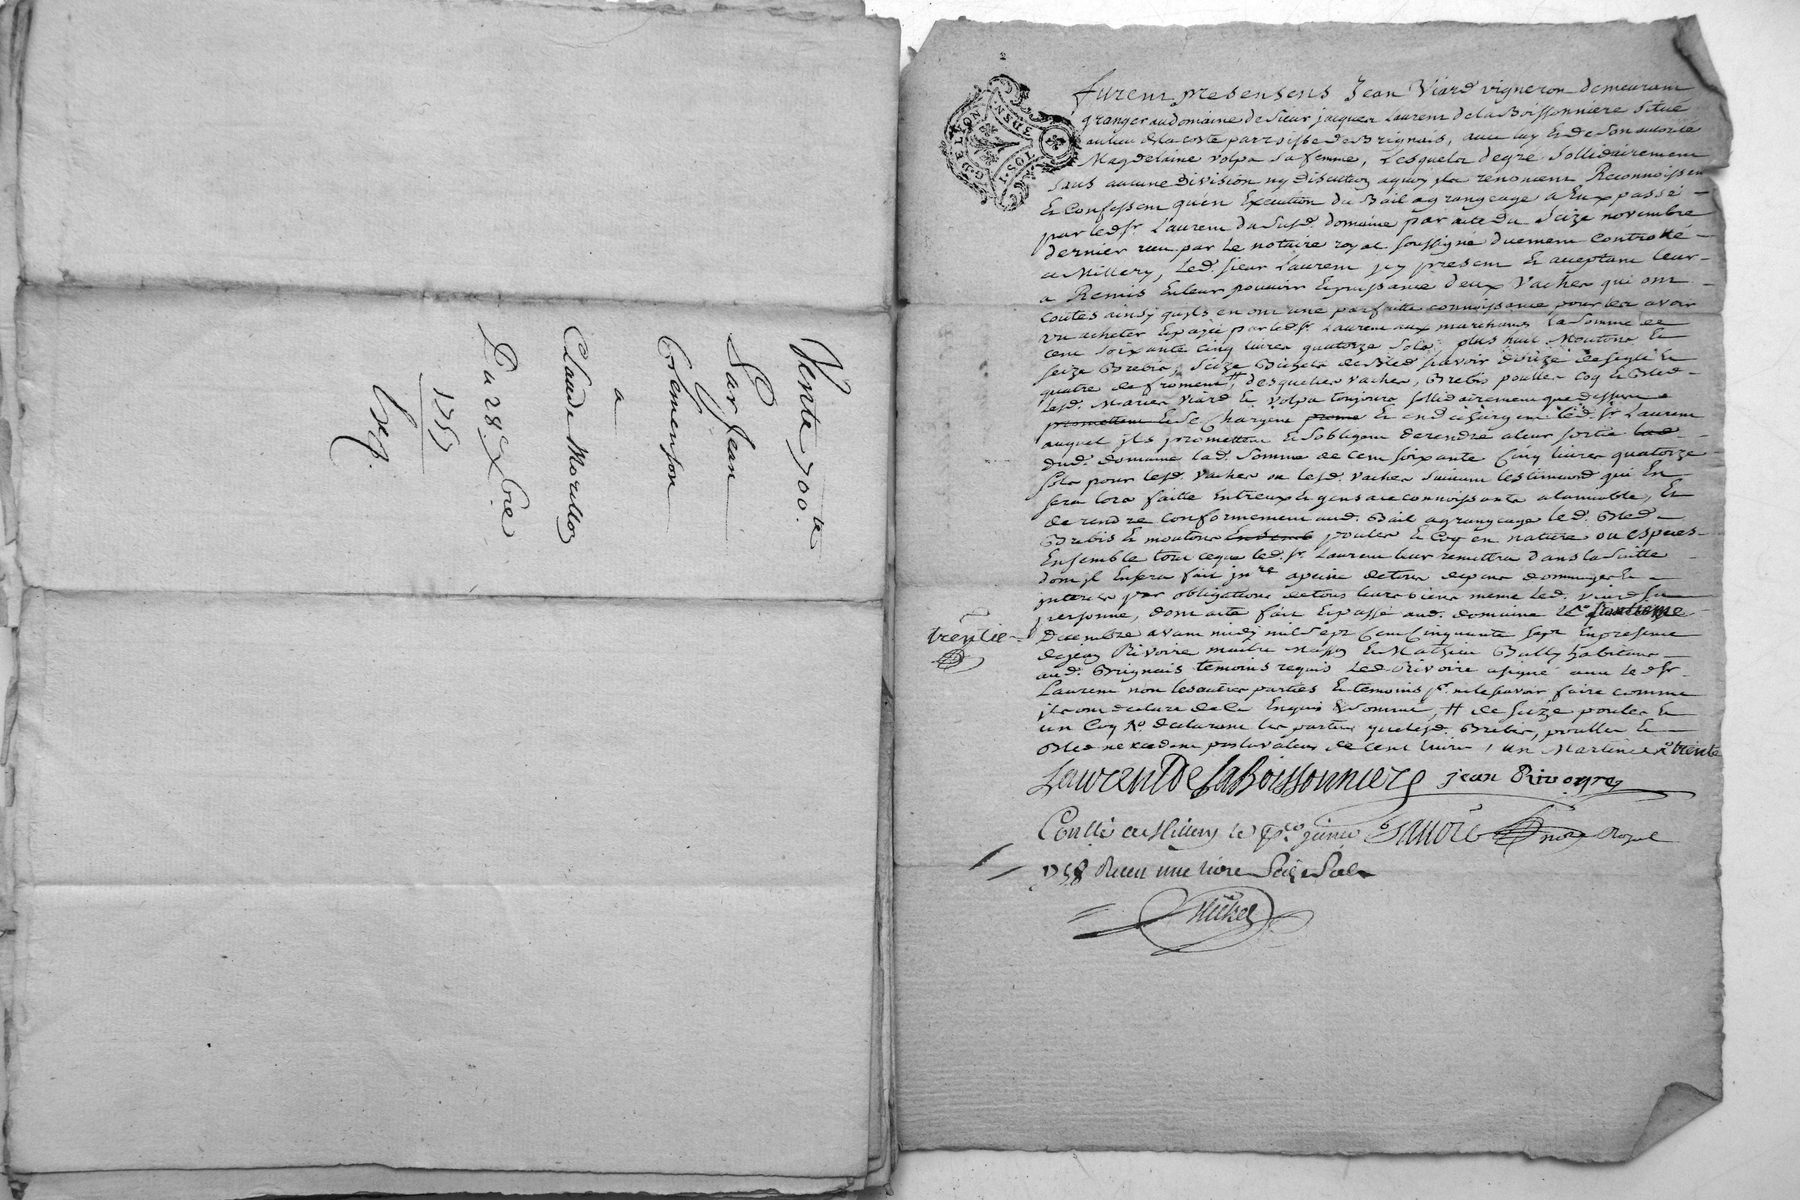 Vente 700.lt
Par Jean
Clemenson
a
Claude Morillon
Du 28e Xbre
1757
Exp.
G. DE LYON
1. SOL
furent presents Jean Viard vigneron demeurant
granger au domaine de Sieur jacques Laurent de la Boissonniere situé
au lieu de la coste parroisse de Brignais, avec luy et de son autorité
Magdelaine volpa sa femme, Lesquels de gré sollidairement
sans aucune division ny discution a quoy ils renoncent Reconnoissent
et Confessent qu'en Execution du Bail a grangeage a Eux passé
par led. Sr Laurent du susd. domaine par acte du seize novembre
dernier reçu par le notaire royal soussigné duement Controllé
a Millery, led. sieur Laurent icy present et aceptant leur
a Remis en leur pouvoir et puissance deux vaches qui ont
coutés ainsy quils en ont une parfaitte connoissance pour les avoir
vu acheter et payé par led. Sr Laurent aux marchands la somme de
cent soixante cinq livres quatorze sols, plus huit moutons et
seize Brebis, seize Bichets de Bled savoir douze de segle et
quatre de froment, # desquelles vaches, Brebis poulles coq et Bled
lesd. Mariés Viard et Volpa toujours sollidairement que dessus
promettent et se Chargent et en déchargent led. Sr Laurent
auquel ils promettent et s'obligent de rendre a leur sortie
dud. domaine lad. somme de cent soixante cinq livres quatorze
sols pour lesd. vaches ou lesd. vaches suivant l'estimaon qui en
sera lors faitte entreux et gens a ce connoissants a lamiable, et
de rendre conformement aud. Bail a grangeage led. Bled
Brebis et moutons poules et Coq en nature ou especes
Ensemble tout ce que led. Sr Laurent leur remettra dans la suitte
dont il en sera fait inre a peine de tous depens dommages et
interes par obligations de tous leurs biens meme led. viard sa
personne, dont acte fait et passé aud. domaine le
trentie
Decembre avant midy mil sept Cent Cinquante sept En presence
de jean Rivoire maitre et Mathieu Bally habitans
aud. Brignais temoins requis led. Rivoire a signé avec led. Sr
Laurent non les autres parties et temoins pr ne le savoir faire comme
ils ont declaré de ce Enquis et sommé, # de seize poules et
un Coq No. declarant les parties que lesd. Brebis, poulles et
Bled ne xcedent pas la valeur de cent livres, trente
Laurent De La Boissonniere jean Rivoyre
Conllé a Millery le janvier nore Royal
1758 Reçu une livre Seize Sols